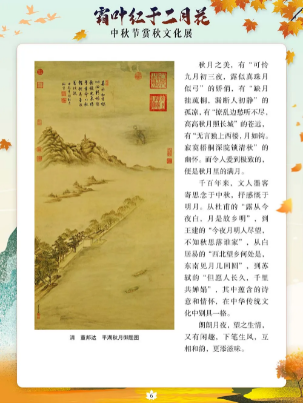 霜叶红于二月花
中秋节赏秋文化展
秋月之美，有“可怜
九月初三夜，露似真珠月
似弓”的娇俏，有“缺月
挂疏桐，漏断人初静”的
孤凉，有“撩乱边愁听不尽，
高高秋月照长城”的苍远，
有“无言独上西楼，月如钩。
寂寞梧桐深院锁清秋”的
幽怀。而令人爱到极致的，
便是秋月里的满月。
千百年来，文人墨客
寄思念于中秋，抒感怀于
明月。从杜甫的“露从今
夜白，月是故乡明”，到
王建的“今夜月明人尽望，
不知秋思落谁家”，从白
居易的“西北望乡何处是，
东南见月几回圆”，到苏
轼的“但愿人长久，千里
共婵娟”，其中蕴含的诗
意和情怀，在中华传统文
化中别具一格。
朗朗月夜，望之生情，
又有闲趣。下笔生风，互
相和韵，更添滋味。
清 董邦达 平湖秋月倒院图
6